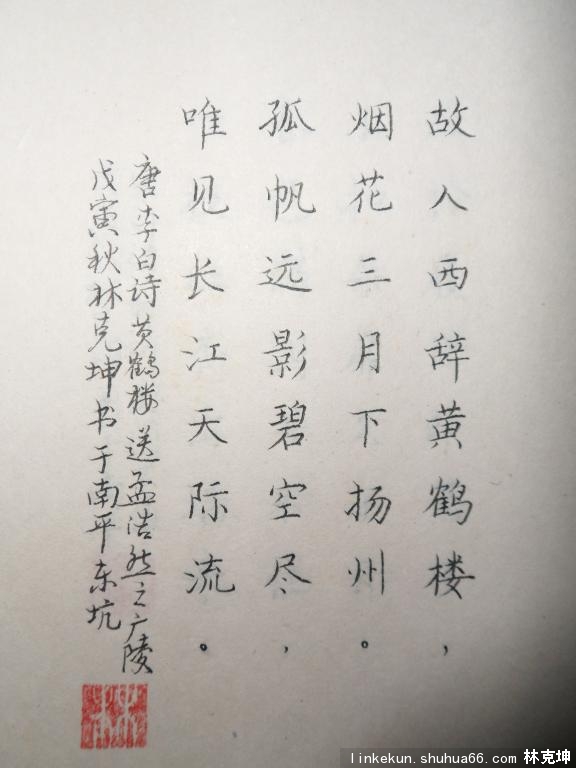 故人西辞黄鹤楼，
烟花三月下扬州。
孤帆远影碧空尽，
唯见长江天际流。
唐李白诗黄鹤楼送孟浩然之广陵
戊寅秋林克坤书于南平东坑
linkekun.shuhua66.com 林克坤